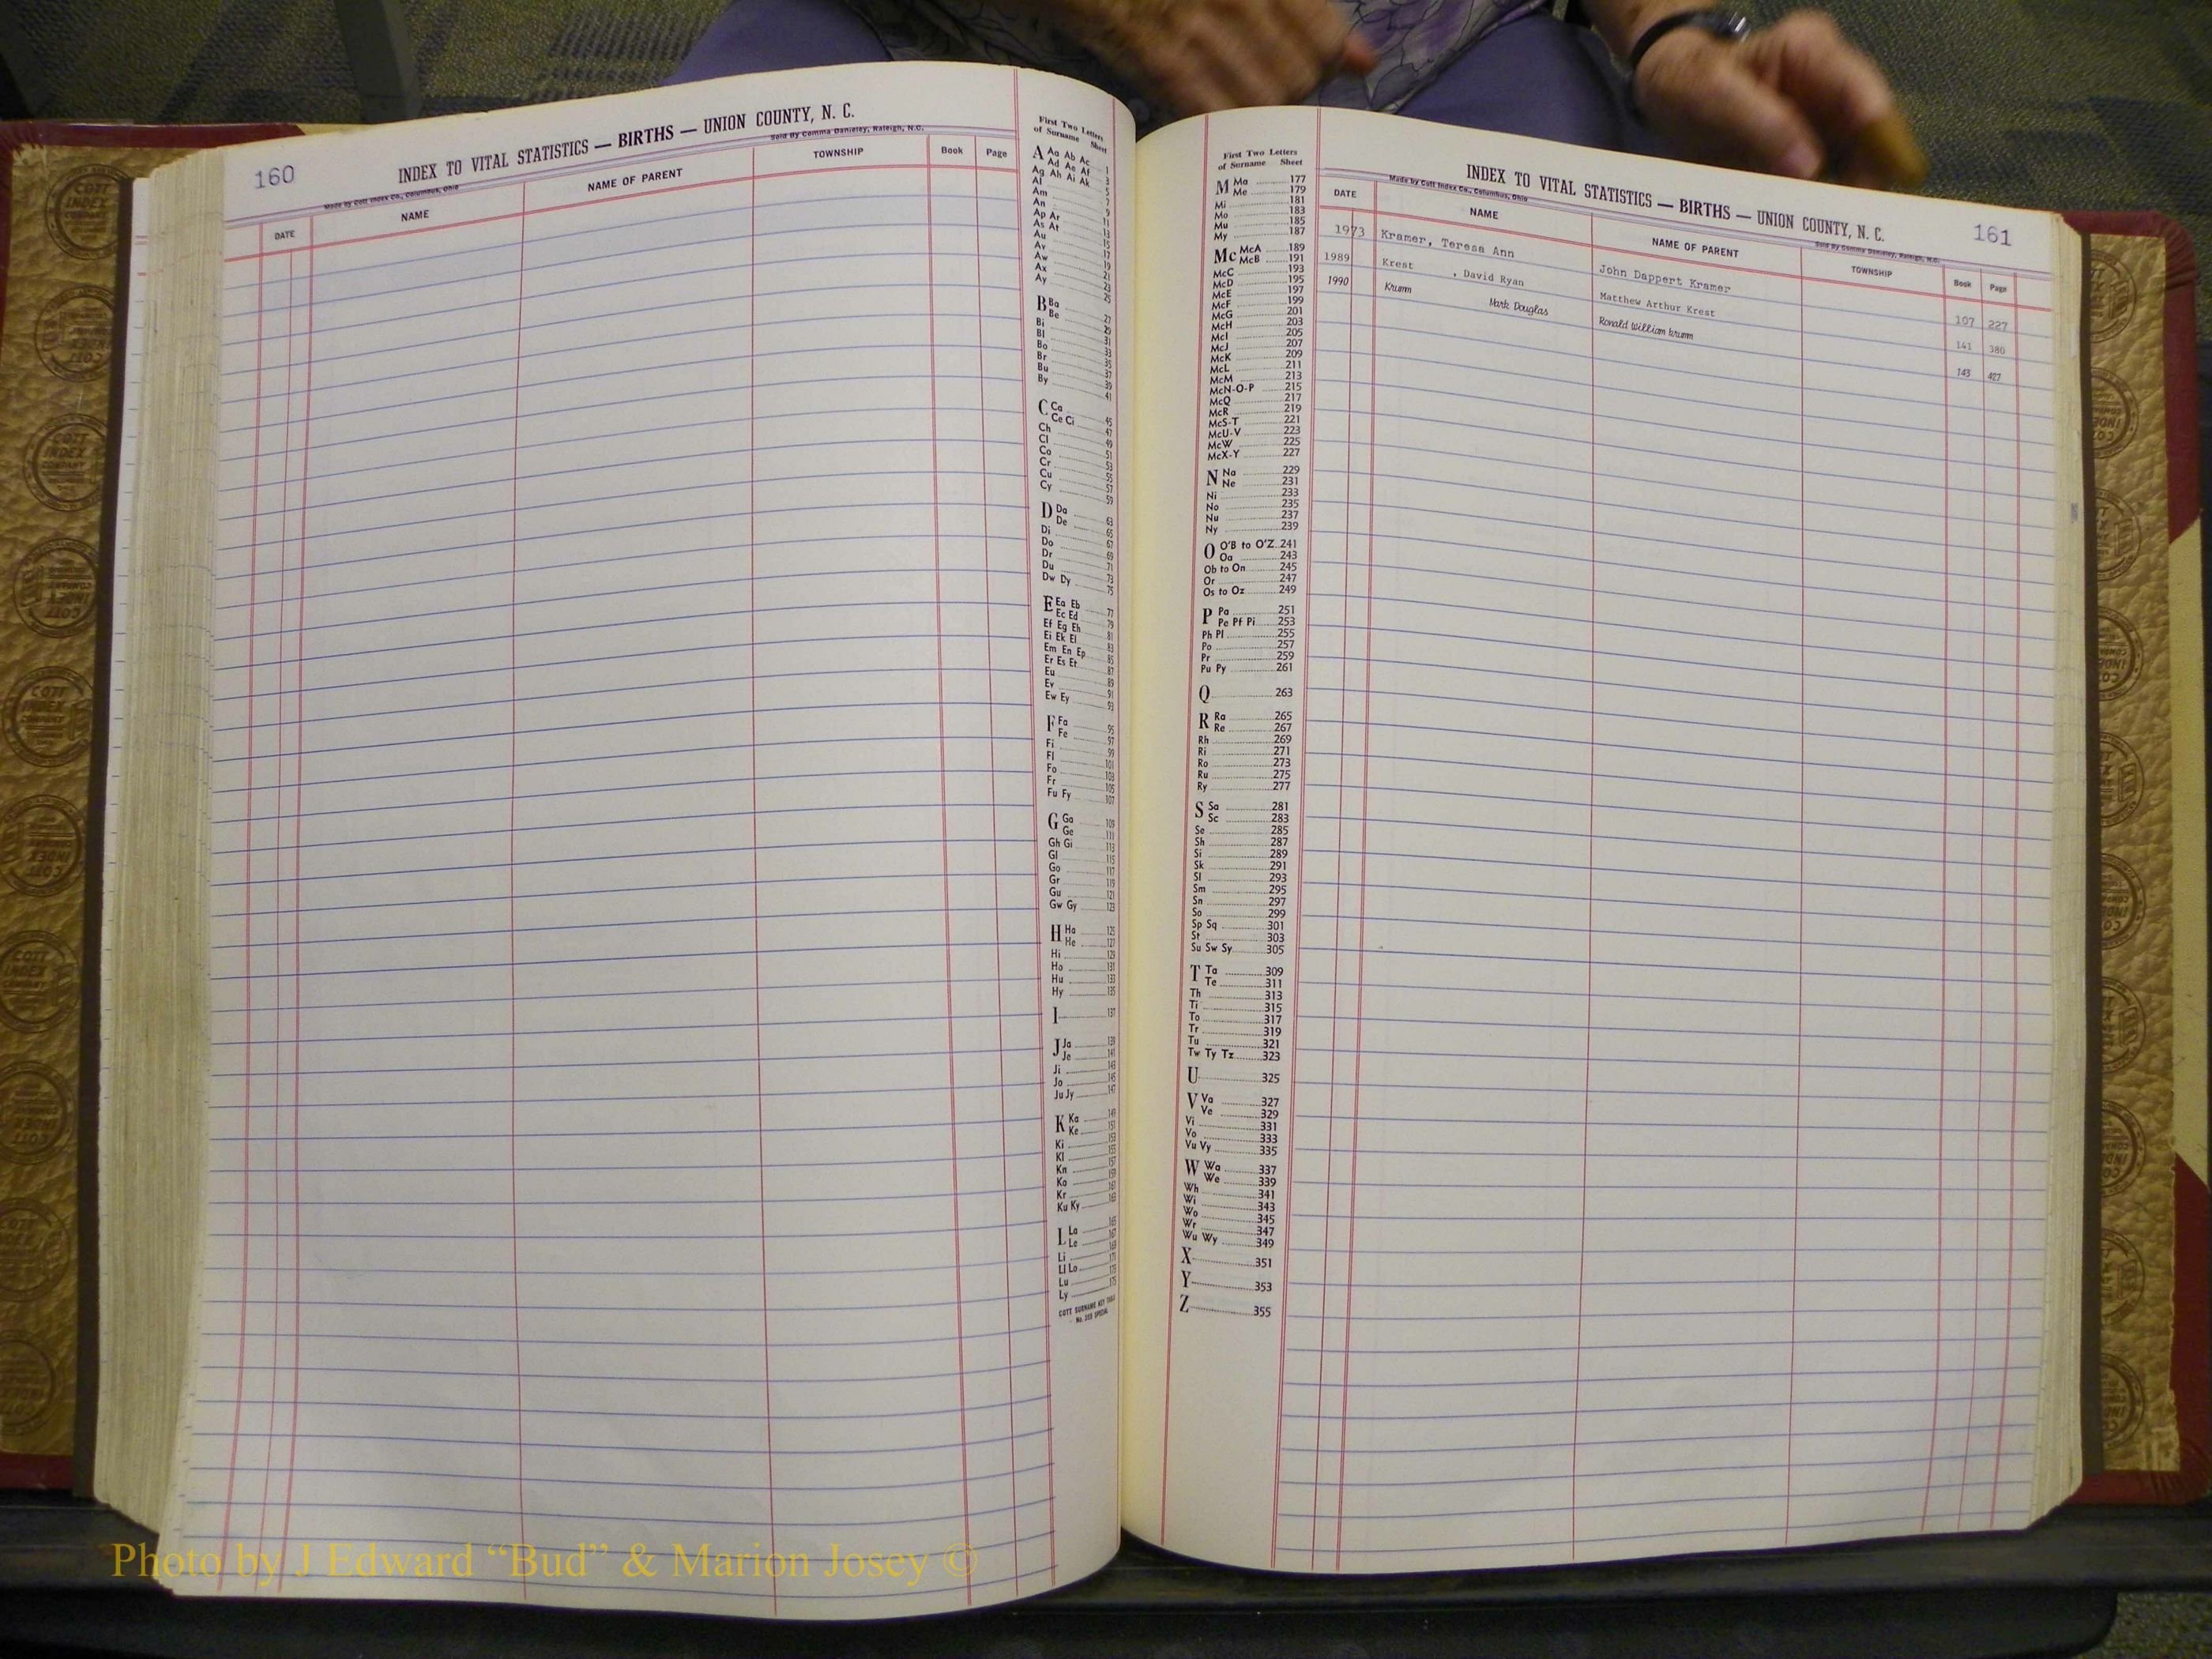 160
INDEX TO VITAL STATISTICS — BIRTHS — UNION COUNTY, N. C.
Made by Cott Index Co., Columbus, Ohio
Sold By Comma Danieley, Raleigh, N.C.
DATE NAME NAME OF PARENT TOWNSHIP Book Page
First Two Letters
of Surname Sheet
A Aa Ab Ac 1
Ad Ae Af 3
Ag Ah Ai Ak 5
Al 7
Am 9
An 11
Ap Ar 13
As At 15
Au 17
Av 19
Aw 21
Ax 23
Ay 25
B Ba 27
Be 29
Bi 31
Bl 33
Bo 35
Br 37
Bu 39
By 41
C Ca 45
Ce Ci 47
Ch 49
Cl 51
Co 53
Cr 55
Cu 57
Cy 59
D Da 63
De 65
Di 67
Do 69
Dr 71
Du 73
Dw Dy 75
E Ea Eb 77
Ec Ed 79
Ef Eg Eh 81
Ei Ek El 83
Em En Ep 85
Er Es Et 87
Eu 89
Ev 91
Ew Ey 93
F Fa 95
Fe 97
Fi 99
Fl 101
Fo 103
Fr 105
Fu Fy 107
G Ga 109
Ge 111
Gh Gi 113
Gl 115
Go 117
Gr 119
Gu 121
Gw Gy 123
H Ha 125
He 127
Hi 129
Ho 131
Hu 133
Hy 135
I 137
J Ja 139
Je 141
Ji 143
Jo 145
Ju Jy 147
K Ka 149
Ke 151
Ki 153
Kl 155
Kn 157
Ko 159
Kr 161
Ku Ky 163
L La 165
Le 167
Li 171
Ll Lo 173
Lu 175
Ly
COTT SURNAME KEY TABLE
No. 203 SPECIAL
First Two Letters
of Surname Sheet
M Ma 177
Me 179
Mi 181
Mo 183
Mu 185
My 187
Mc McA 189
McB 191
McC 193
McD 195
McE 197
McF 199
McG 201
McH 203
McI 205
McJ 207
McK 209
McL 211
McM 213
McN-O-P 215
McQ 217
McR 219
McS-T 221
McU-V 223
McW 225
McX-Y 227
N Na 229
Ne 231
Ni 233
No 235
Nu 237
Ny 239
O O'B to O'Z 241
Oa 243
Ob to On 245
Or 247
Os to Oz 249
P Pa 251
Pe Pf Pi 253
Ph Pl 255
Po 257
Pr 259
Pu Py 261
Q 263
R Ra 265
Re 267
Rh 269
Ri 271
Ro 273
Ru 275
Ry 277
S Sa 281
Sc 283
Se 285
Sh 287
Si 289
Sk 291
Sl 293
Sm 295
Sn 297
So 299
Sp Sq 301
St 303
Su Sw Sy 305
T Ta 309
Te 311
Th 313
Ti 315
To 317
Tr 319
Tu 321
Tw Ty Tz 323
U 325
V Va 327
Ve 329
Vi 331
Vo 333
Vu Vy 335
W Wa 337
We 339
Wh 341
Wi 343
Wo 345
Wr 347
Wu Wy 349
X 351
Y 353
Z 355
INDEX TO VITAL STATISTICS — BIRTHS — UNION COUNTY, N. C.
161
Made by Cott Index Co., Columbus, Ohio
Sold By Comma Danieley, Raleigh, N.C.
DATE NAME NAME OF PARENT TOWNSHIP Book Page
1973 Kramer, Teresa Ann John Dappert Kramer 107 227
1989 Krest , David Ryan Matthew Arthur Krest 141 380
1990 Krumm Mark Douglas Ronald William Krumm 143 427
Photo by J Edward “Bud” & Marion Josey ©